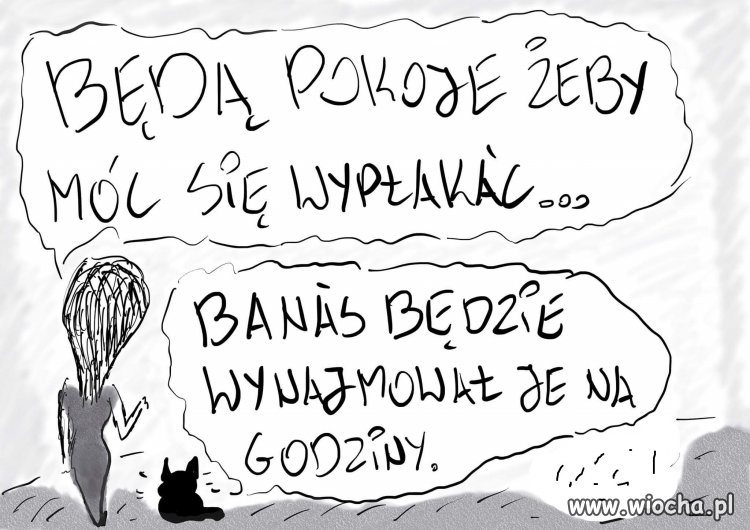 BĘDĄ POKOJE ŻEBY
MÓC SIĘ WYPŁAKAĆ...
BANAŚ BĘDZIE
WYNAJMOWAŁ JE NA
GODZINY.
www.wiocha.pl